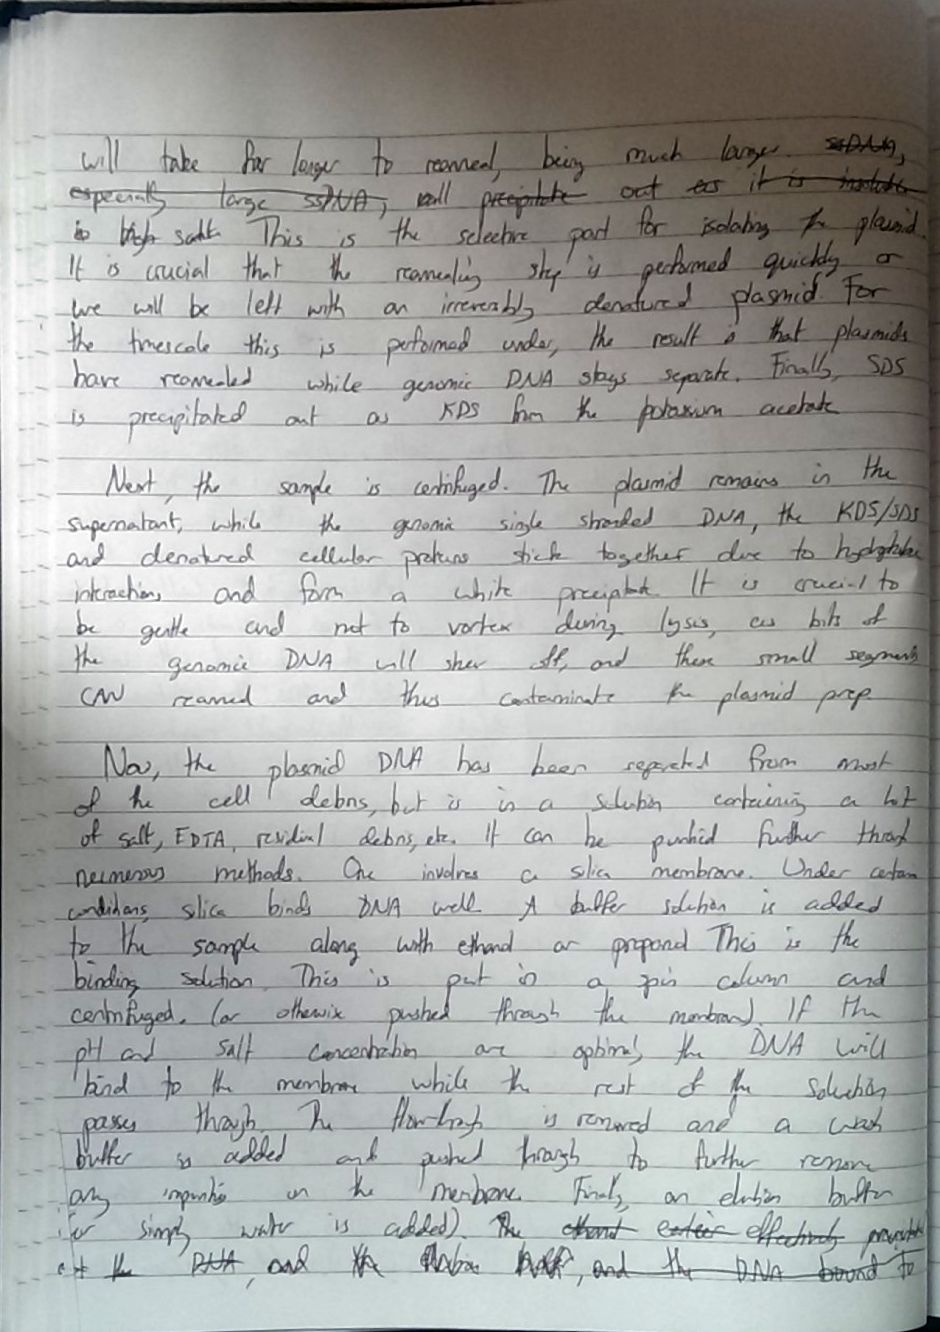 will take far longer to reanneal, being much larger. ssDNA,
especially large ssDNA, will precipitate out as it is insoluble
in high salt. This is the selective part for isolating the plasmid.
It is crucial that the reannealing step is performed quickly or
we will be left with an irreversibly denatured plasmid. For
the timescale this is performed under, the result is that plasmids
have reannealed while genomic DNA stays separate. Finally, SDS
is precipitated out as KDS from the potassium acetate
Next, the sample is centrifuged. The plasmid remains in the
supernatant, while the genomic single stranded DNA, the KDS/SDS
and denatured cellular proteins stick together due to hydrophobic
interactions and form a white precipitate. It is crucial to
be gentle and not to vortex during lysis, as bits of
the genomic DNA will sher off, and these small segments
CAN reanneal and thus contaminate the plasmid prep.
Now, the plasmid DNA has been seperated from most
of the cell debris, but is in a solution containing a lot
of salt, EDTA, residual debris, etc. It can be purified further through
neumerous methods. One involves a silica membrane. Under certain
conditions, silica binds DNA well. A buffer solution is added
to the sample along with ethanol or propanol This is the
binding solution. This is put in a spin column and
centrifuged. (or otherwise pushed through the membrane). If the
pH and salt concentration are optimal, the DNA will
bind to the membrane while the rest of the solution
passes through. The flowthrough is removed and a wash
buffer is added and pushed through to further remove
any impurities on the membrane. Finally, an elution buffer
(or simply water is added). The ethanol effectively precipitates
out the DNA, and the elution buffer, and the DNA bound to